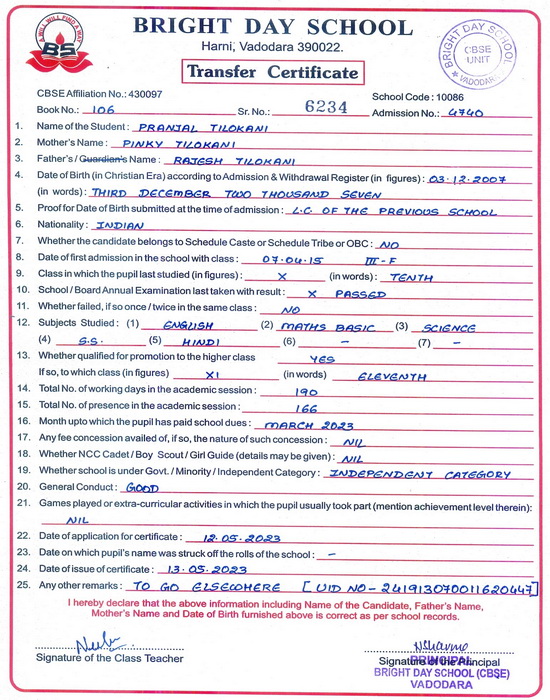 A WILL WILL FIND A WAY
BS
BRIGHT DAY SCHOOL
Harni, Vadodara 390022.
Transfer Certificate
BRIGHT DAY SCHOOL
CBSE
UNIT
VADODARA
CBSE Affiliation No.: 430097
School Code : 10086
Book No.: 106 Sr. No.: 6234 Admission No.: 4740
1. Name of the Student : PRANJAL TILOKANI
2. Mother's Name : PINKY TILOKANI
3. Father's / Guardian's Name : RAJESH TILOKANI
4. Date of Birth (in Christian Era) according to Admission & Withdrawal Register (in figures) : 03.12.2007
(in words) : THIRD DECEMBER TWO THOUSAND SEVEN
5. Proof for Date of Birth submitted at the time of admission : L.C. OF THE PREVIOUS SCHOOL
6. Nationality : INDIAN
7. Whether the candidate belongs to Schedule Caste or Schedule Tribe or OBC : NO
8. Date of first admission in the school with class : 07.04.15 III-F
9. Class in which the pupil last studied (in figures) : X (in words) : TENTH
10. School / Board Annual Examination last taken with result : X PASSED
11. Whether failed, if so once / twice in the same class : NO
12. Subjects Studied : (1) ENGLISH (2) MATHS BASIC (3) SCIENCE
(4) S.S. (5) HINDI (6) - (7) -
13. Whether qualified for promotion to the higher class YES
If so, to which class (in figures) XI (in words) ELEVENTH
14. Total No. of working days in the academic session : 190
15. Total No. of presence in the academic session : 166
16. Month upto which the pupil has paid school dues : MARCH 2023
17. Any fee concession availed of, if so, the nature of such concession : NIL
18. Whether NCC Cadet / Boy Scout / Girl Guide (details may be given) : NIL
19. Whether school is under Govt. / Minority / Independent Category : INDEPENDENT CATEGORY
20. General Conduct : GOOD
21. Games played or extra-curricular activities in which the pupil usually took part (mention achievement level therein):
NIL
22. Date of application for certificate : 12.05.2023
23. Date on which pupil's name was struck off the rolls of the school : -
24. Date of issue of certificate : 13.05.2023
25. Any other remarks : TO GO ELSEWHERE [UID NO - 241913070011620447]
I hereby declare that the above information including Name of the Candidate, Father's Name,
Mother's Name and Date of Birth furnished above is correct as per school records.
Signature of the Class Teacher
Signature of the Principal
PRINCIPAL
BRIGHT DAY SCHOOL (CBSE)
VADODARA